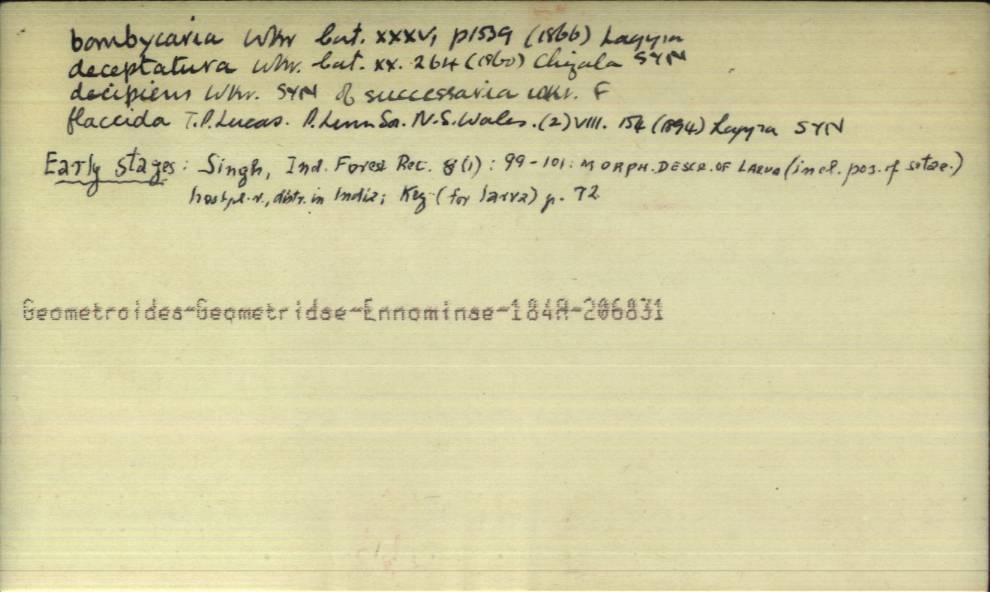 bombycaria Wkr Cat. XXXV, p1539 (1866) Lagyra
deceptatura Wkr. Cat. XX. 264 (1860) Chizala SYN
decipiens Wkr. SYN of successaria Wkr. F
flaccida T.P. Lucas. P. Linn So. N.S. Wales. (2) VIII. 154 (1894) Lagyra SYN
Early stages: Singh, Ind. Forest Rec. 8(1): 99-101: MORPH. DESCR. OF LARVA (incl. pos. of setae.)
hostpl. r., distr. in India; Key (for larva) p. 72
Geometroidea-Geometridae-Ennominae-184A-206831